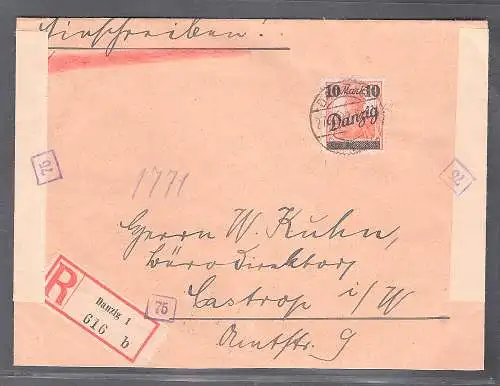 Einschreiben!
10 Mark 10
Danzig
76
76
1771
Herrn W. Kuhn,
Bürodirektor
Castrop i/W
Amtstr. 9
75
R
Danzig 1
616 b